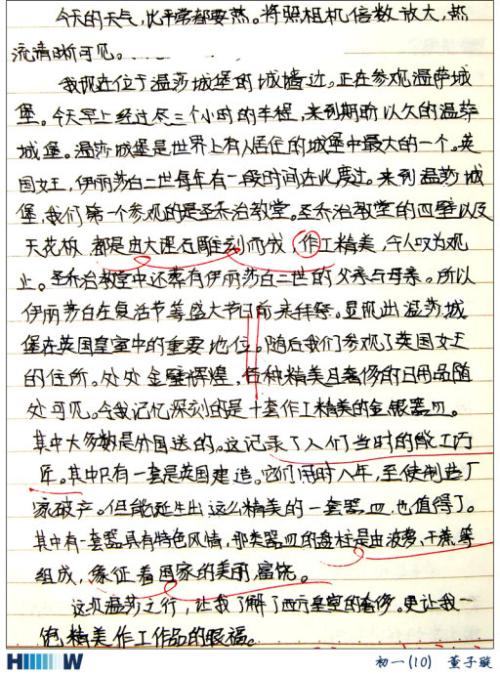 今天的天气，比平常都要热。将照相机倍数放大，热
流清晰可见。
我现在位于温莎城堡的城墙边。正在参观温莎城
堡。今天早上经过尽三个小时的车程，来到期盼以久的温莎
城堡。温莎城堡是世界上有人居住的城堡中最大的一个。英
国女王，伊丽莎白二世每年有一段时间在此度过。来到温莎城
堡，我们第一个参观的是圣乔治教堂。圣乔治教堂的四壁以及
天花板都是由大理石雕刻而成，作工精美，令人叹为观
止。圣乔治教堂中还葬有伊丽莎白二世的父亲与母亲。所以
伊丽莎白在复活节等盛大节日前来拜祭。显现出温莎城
堡在英国皇室中的重要地位。随后我们参观了英国女王
的住所。处处金壁辉煌，各种精美且奢侈的日用品随
处可见。令我记忆深刻的是十套作工精美的金银器皿。
其中大多数是外国送的。这记录了人们当时的能工巧
匠。其中只有一套是英国建造。它们用时八年，至使制造厂
家破产。但能延生出这么精美的一套器皿也值得了。
其中有一套器具有特色风情，那类器皿的盘柱是由菠萝、干蕉等
组成，象征着国家的美丽富饶。
这次温莎之行，让我了解了西方皇室的奢侈。更让我一
饱精美作工作品的眼福。
初一(10) 董子璇